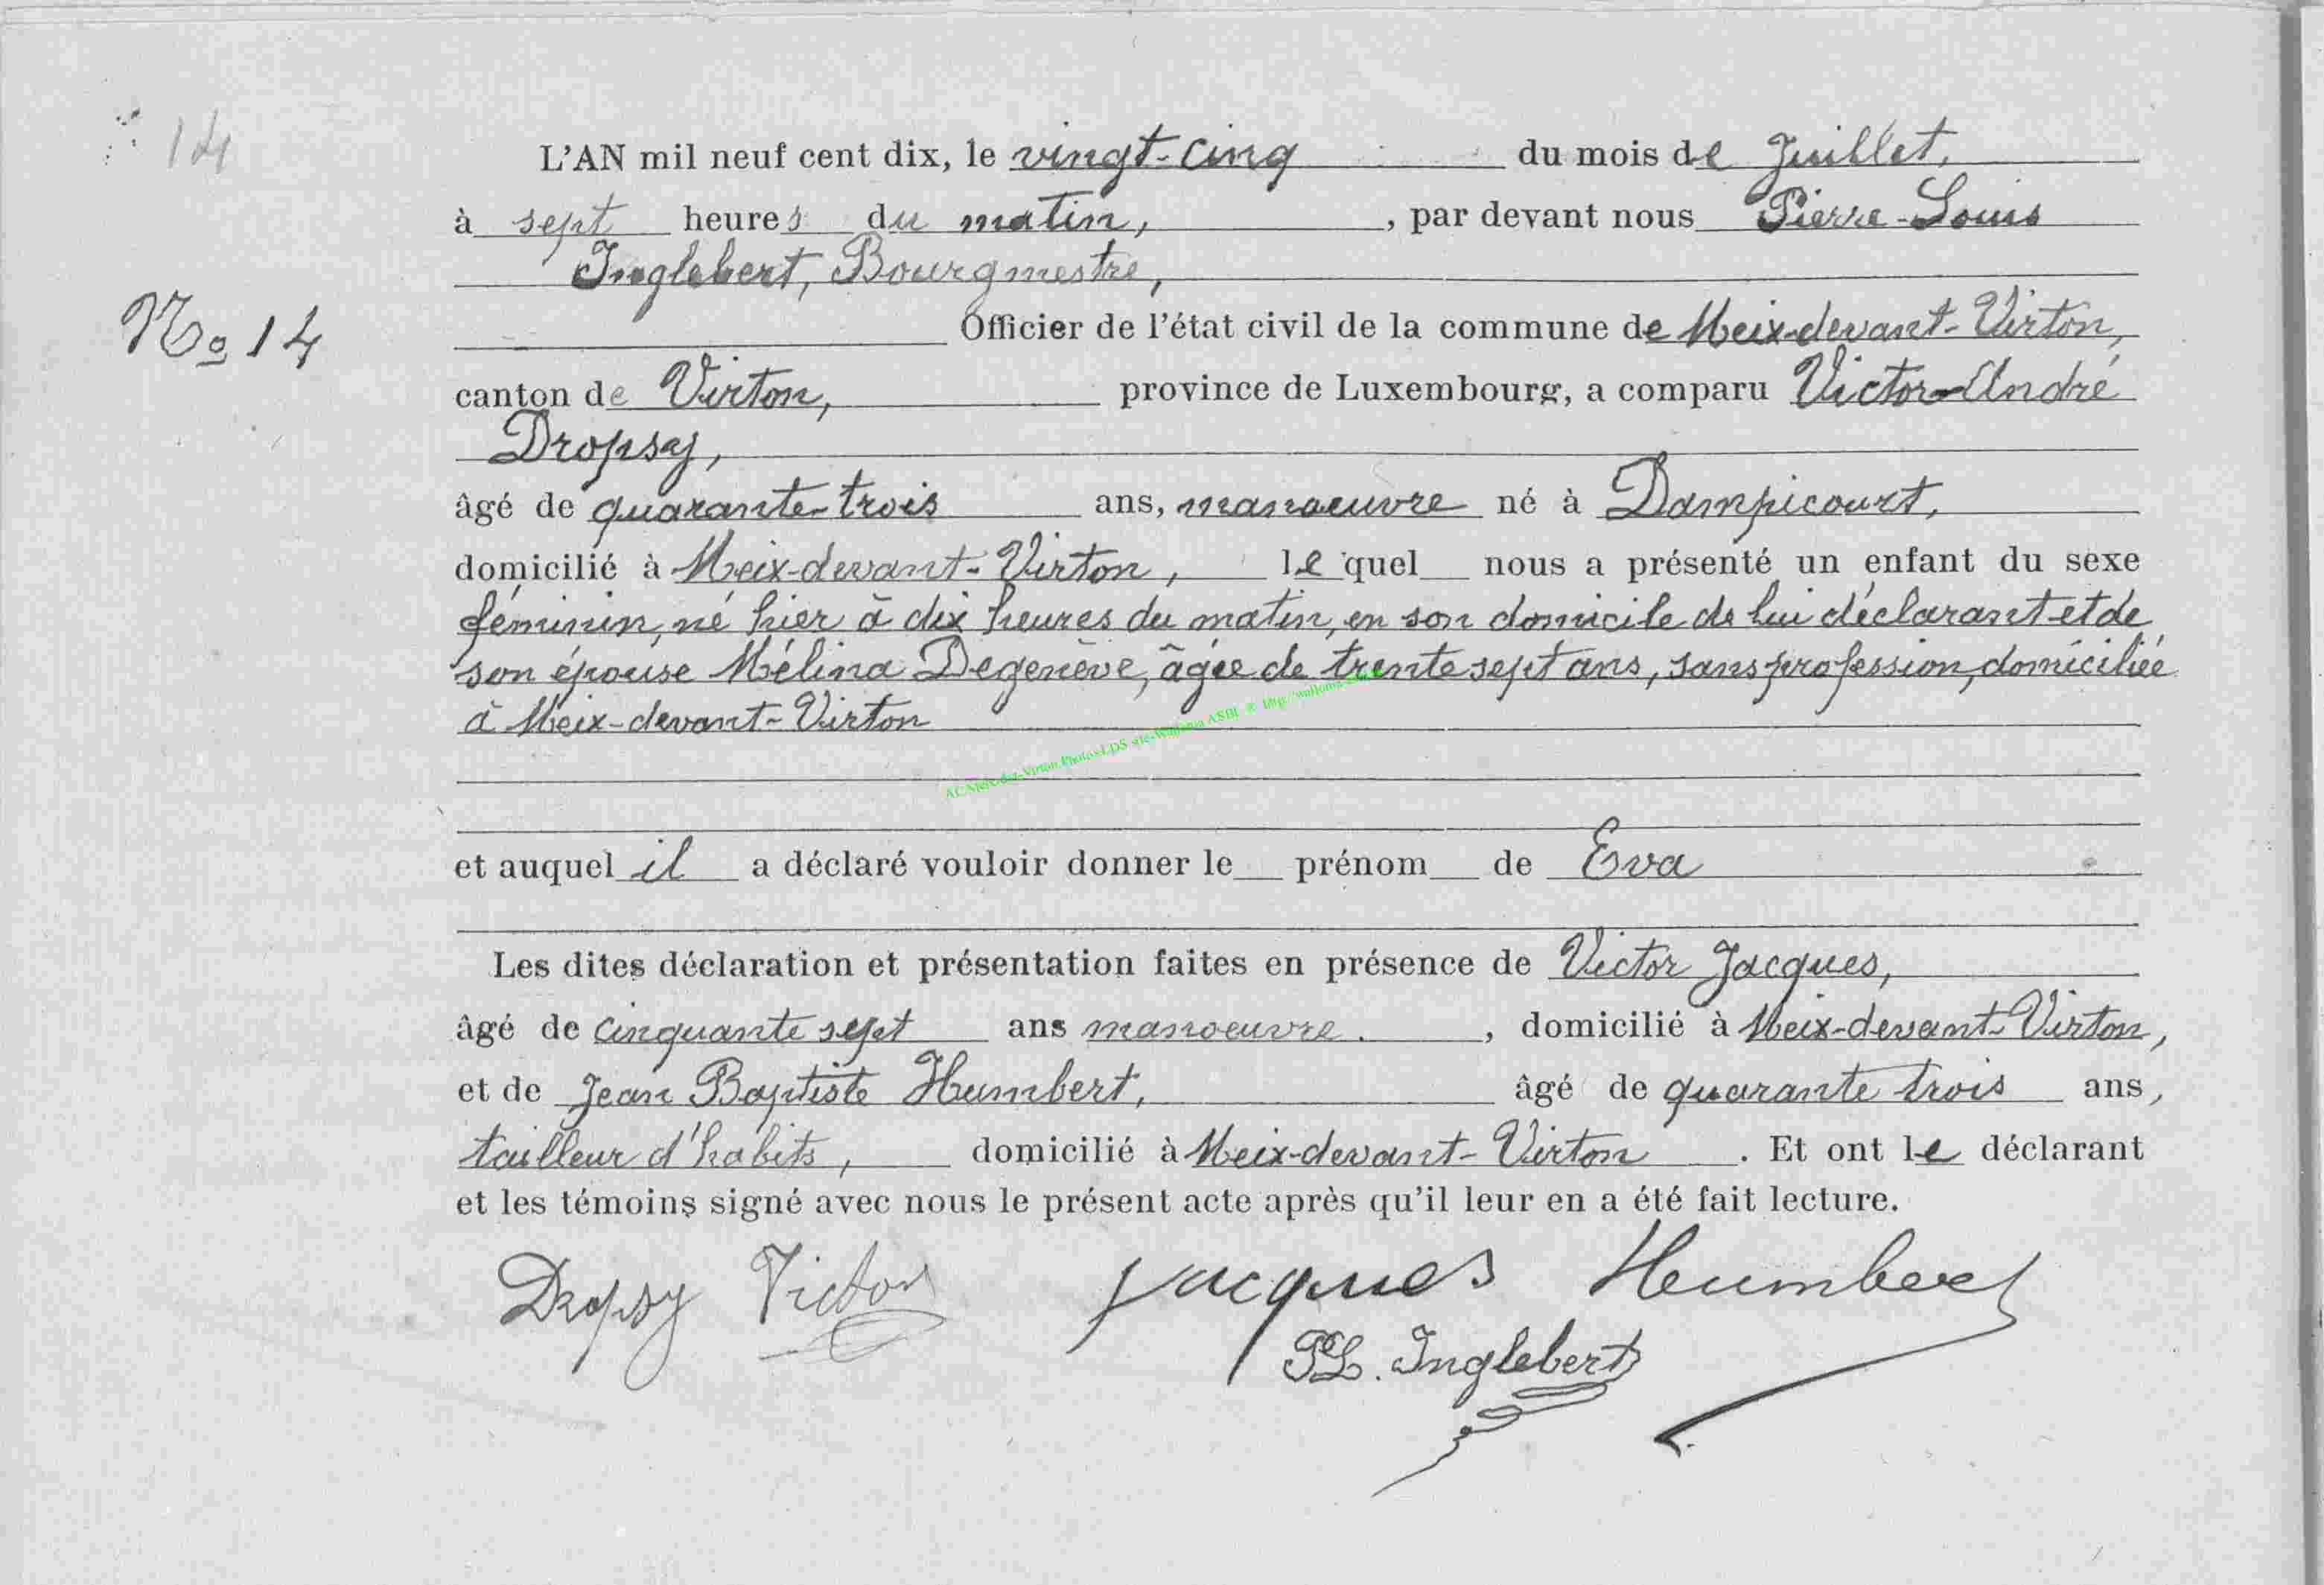 14
L'AN mil neuf cent dix, le vingt-cinq du mois de Juillet,
à sept heures du matin, , par devant nous Pierre-Louis
Inglebert, Bourgmestre,
No 14
Officier de l'état civil de la commune de Meix-devant-Virton,
canton de Virton, province de Luxembourg, a comparu Victor-André
Dropsy,
âgé de quarante-trois ans, manoeuvre né à Dampicourt,
domicilié à Meix-devant-Virton, lequel nous a présenté un enfant du sexe
féminin, né hier à dix heures du matin, en son domicile de lui déclarant et de
son épouse Mélina Degenève, âgée de trente sept ans, sans profession, domiciliée
à Meix-devant-Virton
et auquel il a déclaré vouloir donner le prénom de Eva
Les dites déclaration et présentation faites en présence de Victor Jacques,
âgé de cinquante sept ans manoeuvre. , domicilié à Meix-devant-Virton,
et de Jean Baptiste Humbert, âgé de quarante trois ans,
tailleur d'habits, domicilié à Meix-devant-Virton . Et ont le déclarant
et les témoins signé avec nous le présent acte après qu'il leur en a été fait lecture.
Dropsy Victor Jacques Humbert
PL. Inglebert